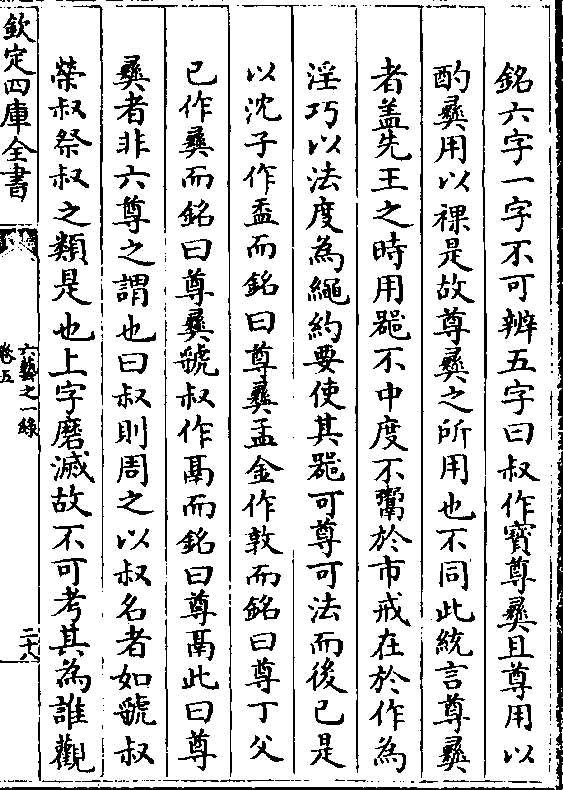 銘六字一字不可辨五字曰叔作寳尊彞且尊用以
酌彞用以祼是故尊彞之所用也不同此統言尊彞
者盖先王之時用器不中度不鬻於市戒在於作為
淫巧以法度為繩約要使其器可尊可法而後已是
以沈子作盉而銘曰尊彞孟金作敦而銘曰尊丁父
已作彞而銘曰尊彞虢叔作鬲而銘曰尊鬲此曰尊
彞者非六尊之謂也曰叔則周之以叔名者如虢叔
榮叔祭叔之類是也上字磨滅故不可考其為誰觀
欽定四庫全書
六藝之一録
卷五
二十八